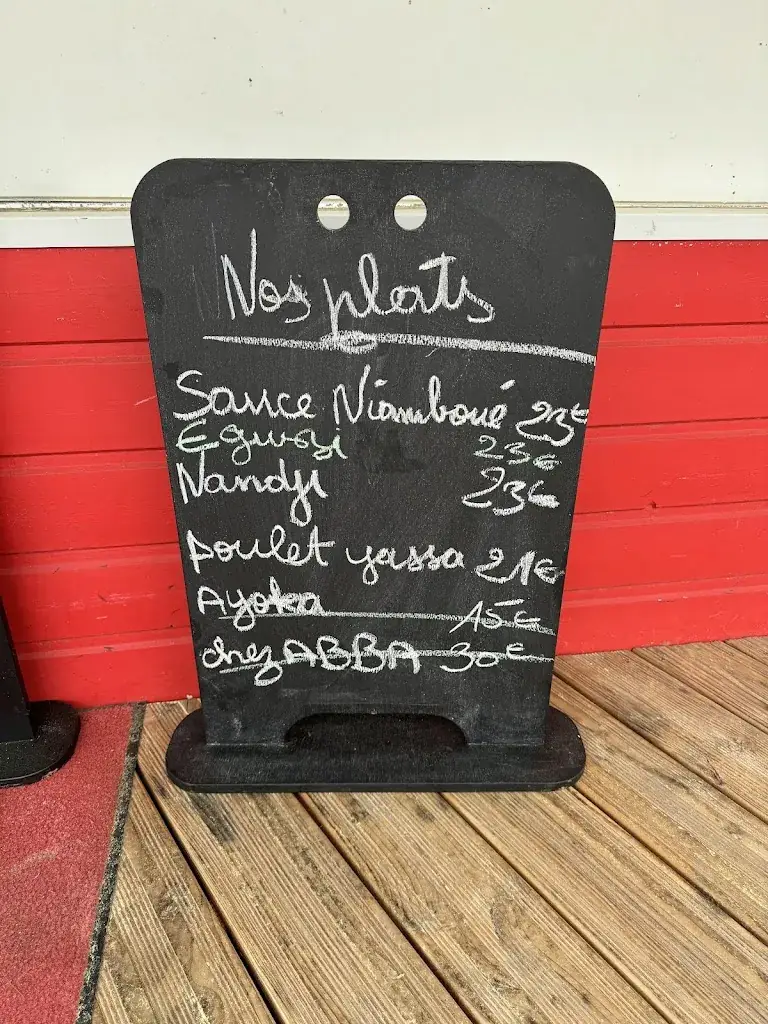 Nos plats
Sauce Niamboué 23€
Egwosi 23€
Nandji 23€
poulet yassa 21€
Ayoka 15€
chez ABBA 30€